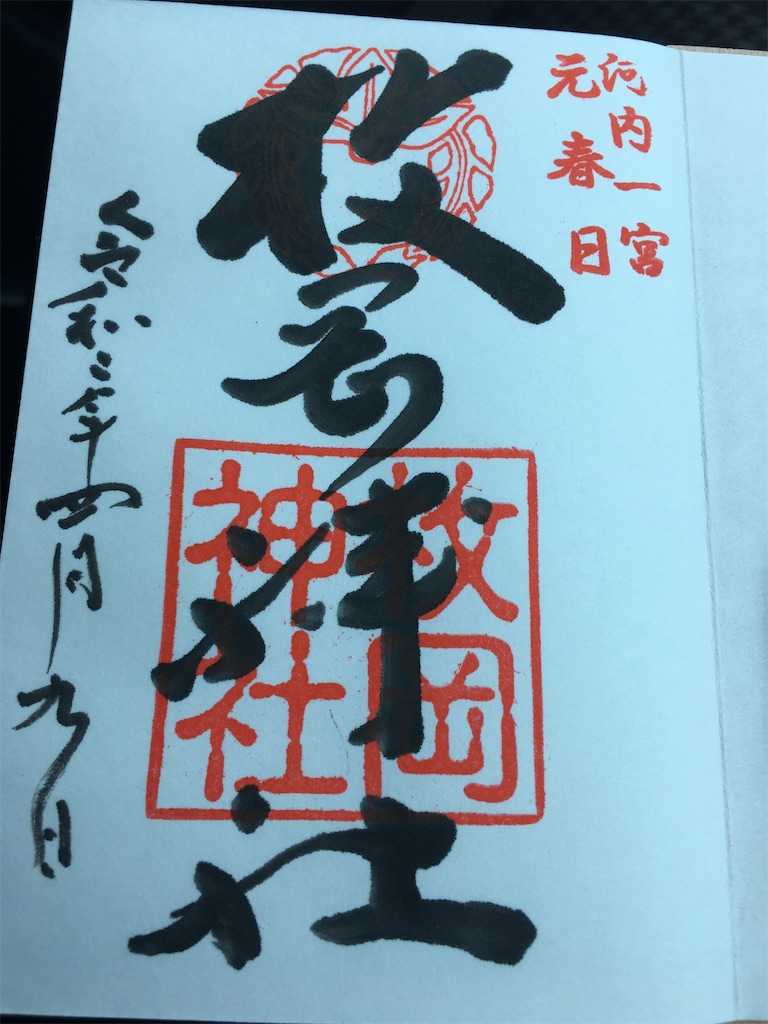 河内一宮
元春日
枚岡神社
枚岡
神社
令和三年四月九日